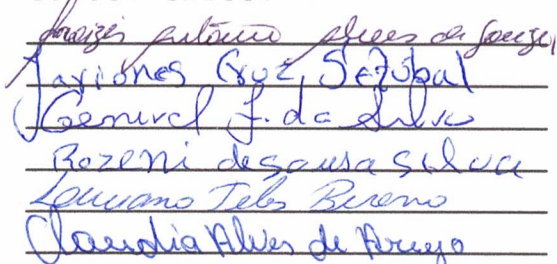 antonio Alves de Souza
Cruz Setubal
Genivel J. da Silva
Rozeni de sousa silva
Luciano Teles
Claudia Alves de Araujo